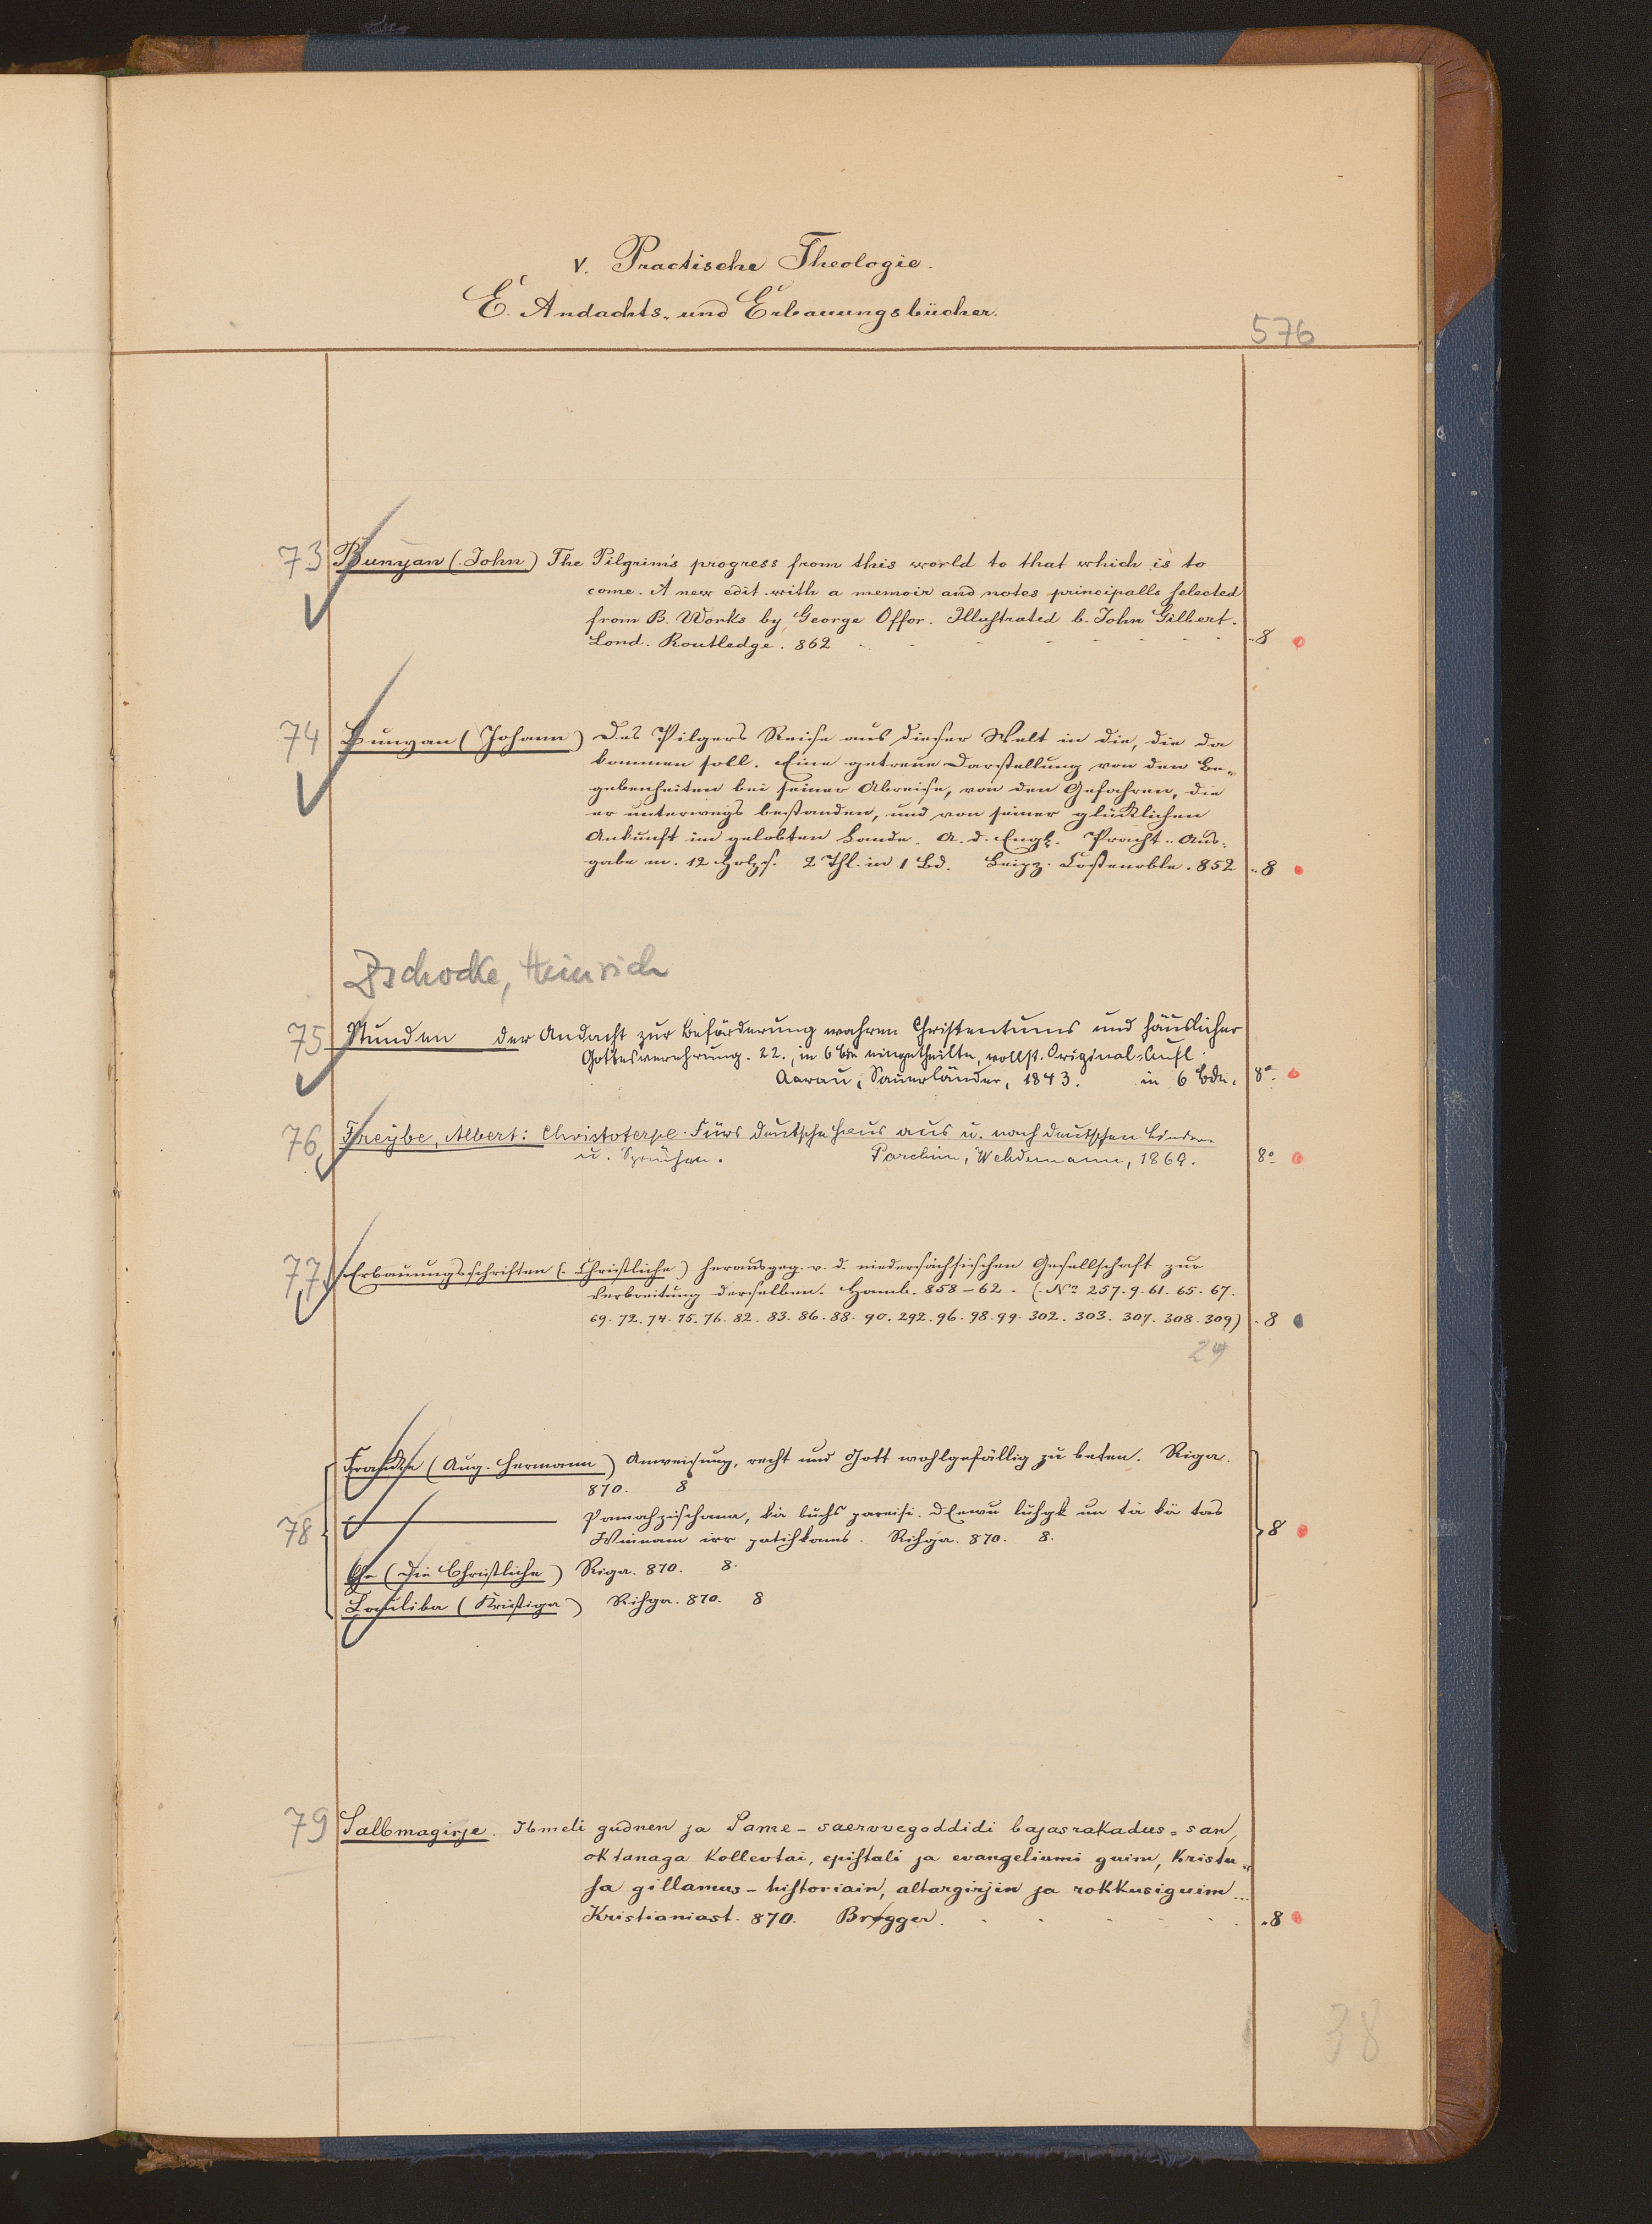 V. Practische Theologie.
E. Andachts- und Erbauungsbücher.
576
73 Bunyan (John) The Pilgrim's progress from this world to that which is to
come. A new edit. with a memoir and notes principalls selected
from B. Works by George Offor. Illustrated b. John Gilbert.
Lond. Routledge. 862 - - - - - - - 8
74 Bunyan (Johann) Des Pilgers Reise aus dieser Welt in die, die da
kommen soll. Eine getreue Darstellung von den Be-
gebenheiten bei seiner Abreise, von den Gefahren, die
er unterwegs bestanden, und von seiner glücklichen
Ankunft im gelobten Lande. A. d. Engl. Pracht-Aus-
gabe m. 12 Holzs. 2 Thl. in 1 Bd. Leipz. Costenoble. 852 8
Zschocke, Heinrich
75 Stunden der Andacht zur Beförderung wahren Christentums und häuslicher
Gottesverehrung. 22., in 6 Bde eingetheilte, vollst. Original-Aufl.
Aarau, Sauerländer, 1843. in 6 Bdn. 8°
76 Freybe, Albert: Christoterpe. Fürs deutsche Haus aus u. nach deutschen Liedern
u. Sprüchen. Parchim, Wehdemann, 1869. 8°
77 Erbauungsschriften (Christliche) herausgeg. v. d. niedersächsischen Gesellschaft zur
Verbreitung derselben. Hamb. 858-62. (No 257. 9. 61. 65. 67.
69. 72. 74. 75. 76. 82. 83. 86. 88. 90. 292. 96. 98. 99. 302. 303. 307. 308. 309) 8
24
Francke (Aug. Hermann) Anweisung, recht und Gott wohlgefällig zu beten. Riga.
870. 8
78 Pamahzischana, kà buhs pareisi Deewu luhgt un tà kà tas
Winam irr patihkams. Rihga. 870. 8. 8
Ehe (Die Christliche) Riga. 870. 8.
Lauliba (Kristiga) Rihga. 870. 8
79 Salbmagirje. Ibmeli gudnen ja Same-saervvegoddidi bajasrakadus-san,
oktanaga kollevtai, epistali ja evangeliumi guim, Kristu-
sa gillamus-historiain, altargirjin ja rokkusiguim...
Kristianiast. 870. Brøgger. - - - - - 8
38